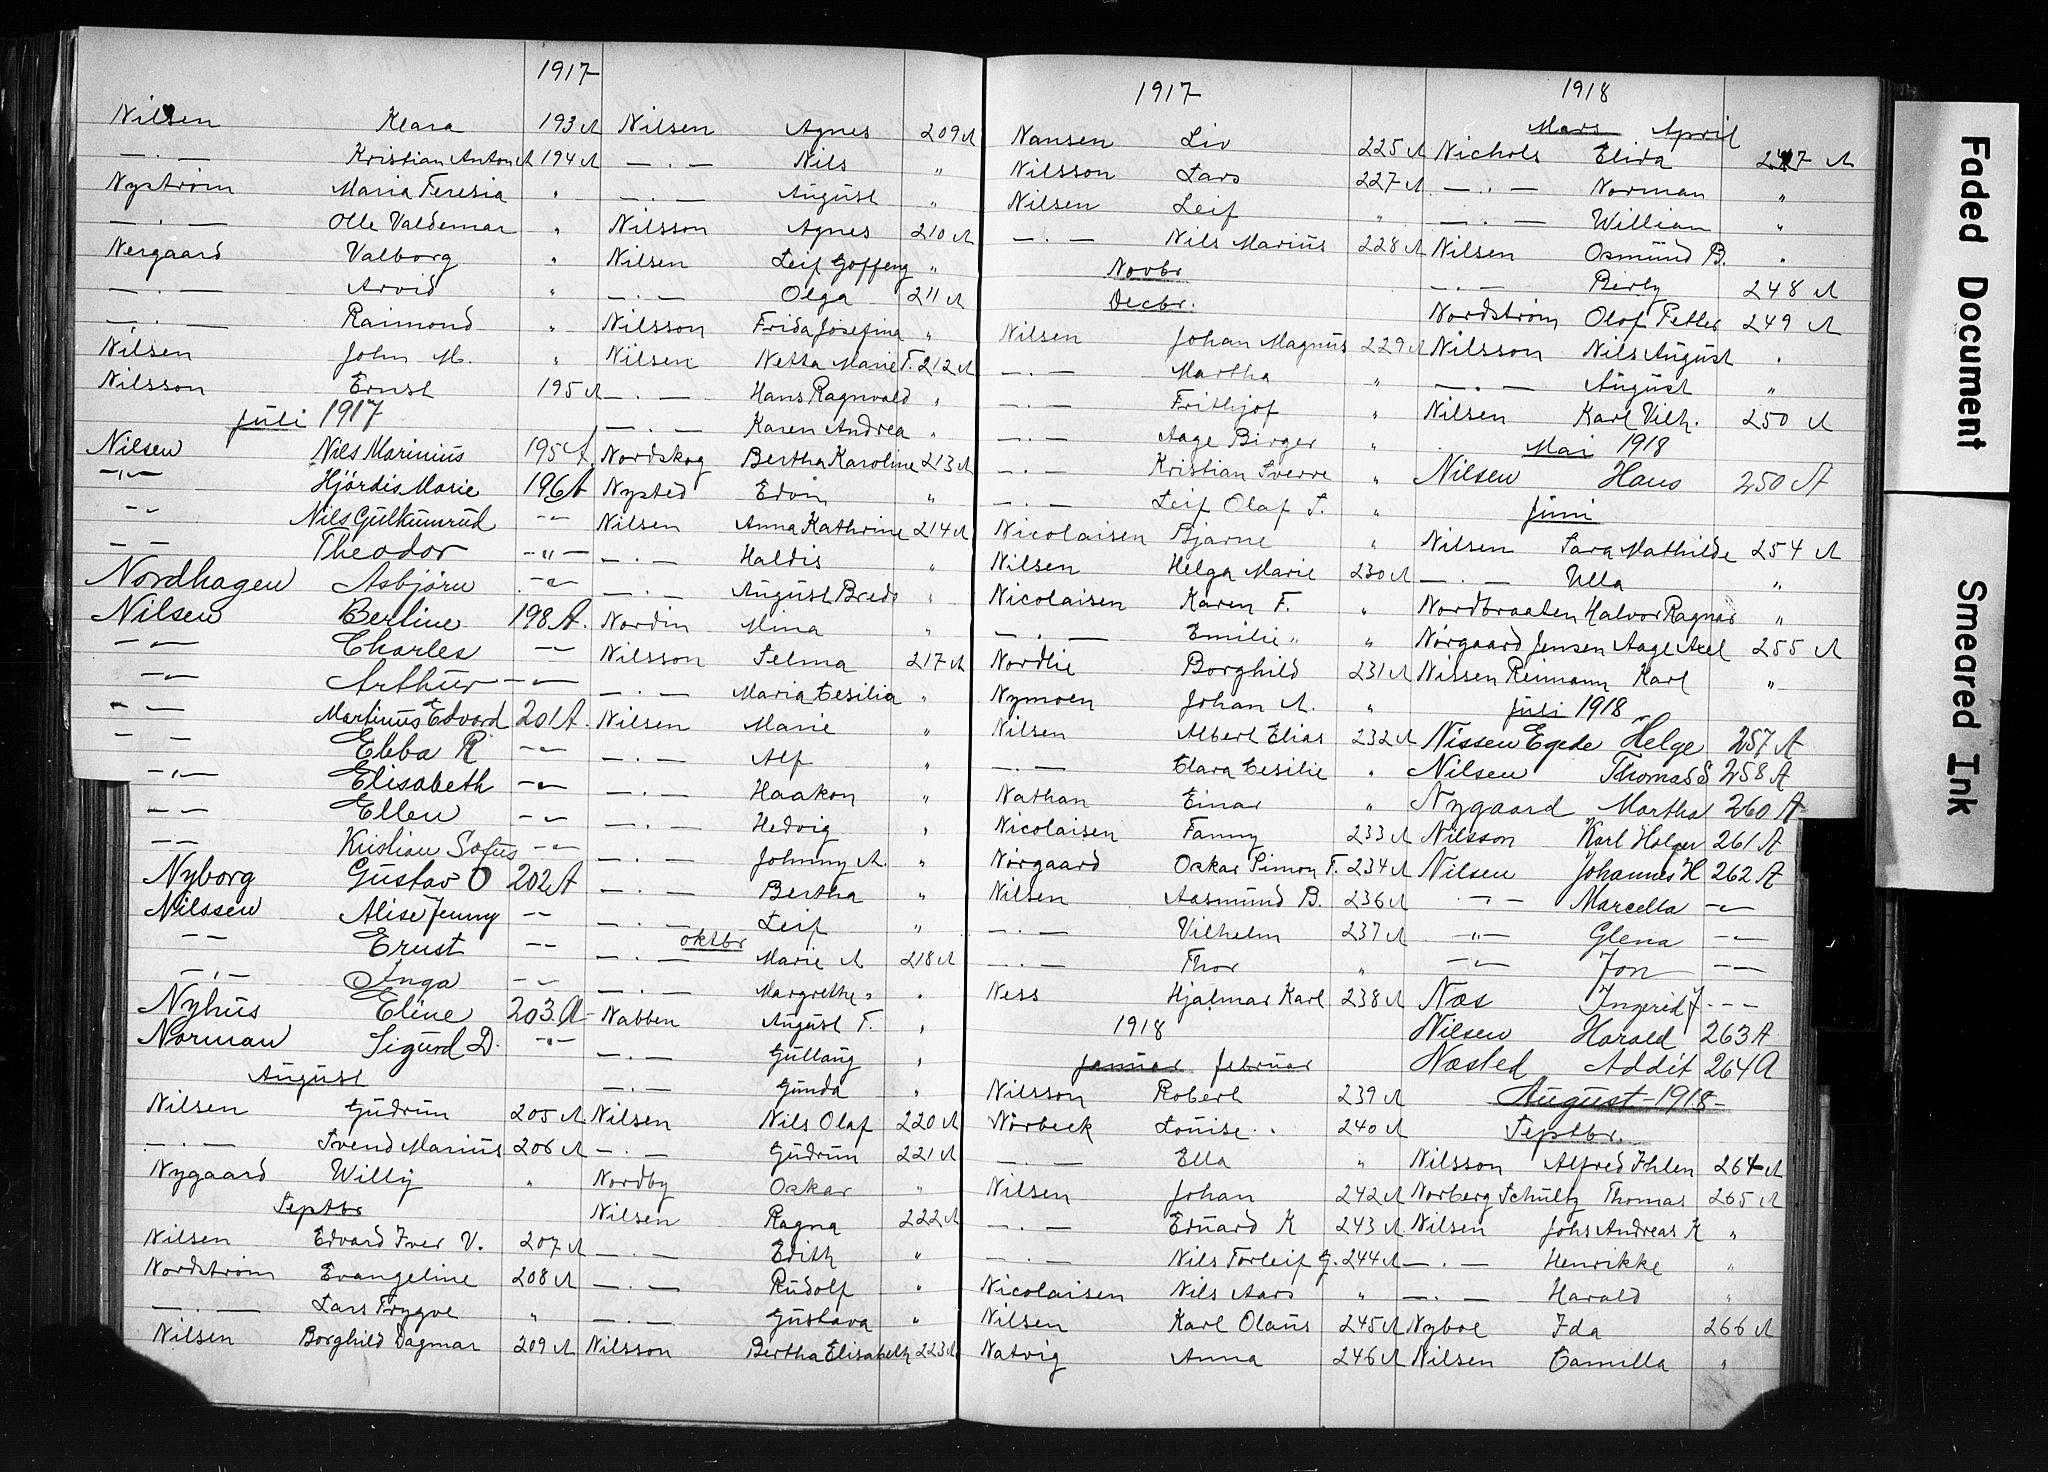 1917
Nilsen Klara 193 A
—.— Kristian Anton A 194 A
Nyström Maria Teresia "
—.— Olle Valdemar "
Nergaard Valborg "
—.— Arvid "
—.— Raimond "
Nilsen John M. "
Nilsson Ernst 195 A
Juli 1917
Nilsen Nils Marinius 195 A
—"— Hjördis Marie 196 A
—"— Nils Gulkumrud —"—
— — Theodor —"—
Nordhagen Asbjörn —"—
Nilsen Berline 198 A.
—"— Charles —"—
—"— Arthur —"—
—"— Martinus Edvard 201 A.
—"— Ebba R —"—
—"— Elisabeth —"—
—"— Ellen —"—
—"— Kristian Sofus —"—
Nyborg Gustav O 202 A
Nilssen Alise Jenny —"—
—"— Ernst —"—
—"— Inga —"—
Nyhus Eline 203 A
Norman Sigurd D. —"—
August
Nilsen Gudrun 205 A
—.— Svend Marius 206 A
Nygaard Willy "
Septbr
Nilsen Edvard Iver V. 207 A
Nordstrøm Evangeline 208 A
—.— Lars Trygve "
Nilsen Borghild Dagmar 209 A
Nilsen Agnes 209 A
—.— Nils "
—.— August "
Nilsson Agnes 210 A
Nilsen Leif Goffeng "
—.— Olga 211 A
Nilsson Frida Josefina "
Nilsen Netta Marie T. 212 A
—.— Hans Ragnvald "
—.— Karen Andrea "
Nordskog Bertha Karoline 213 A
Nysted Edvin "
Nilsen Anna Kathrine 214 A
—.— Haldis "
—.— August Bredo "
Nordin Mina "
Nilsson Selma 217 A
—.— Maria Cesilia "
Nilsen Marie "
—.— Alf "
—.— Haakon "
—.— Hedvig "
—.— Johnny A. "
—.— Bertha "
—.— Leif "
oktbr
—.— Marie A 218 A
—.— Margrethe " "
Nabben August T. "
—.— Gullaug "
—.— Gunda "
Nilsen Nils Olaf 220 A
—.— Gudrun 221 A
Nordby Oskar "
Nilsen Ragna 222 A
—.— Edith "
—.— Rudolf "
—.— Gustava "
Nilsson Bertha Elisabeth 223 A
1917
Nansen Liv 225 A
Nilsson Lars 227 A
Nilsen Leif "
—.— Nils Marius 228 A
Novbr
Decbr.
Nilsen Johan Magnus 229 A
—.— Martha "
—.— Frithjof "
—.— Aage Birger "
—.— Kristian Sverre "
—.— Leif Olaf S. "
Nicolaisen Bjarne "
Nilsen Helga Marie 230 A
Nicolaisen Karen F. "
—.— Emilie " "
Nordlie Borghild 231 A
Nymoen Johan A. "
Nilsen Albert Elias 232 A
—.— Clara Cesilie "
Nathan Einar "
Nicolaisen Fanny 233 A
Nørgaard Oskar Simon F. 234 A
Nilsen Aasmund B. 236 A
—.— Vilhelm 237 A
—.— Thor "
Ness Hjalmar Karl 238 A
1918
Januar februar
Nilsson Robert 239 A
Nørbeck Louise 240 A
—.— Ella "
Nilsen Johan 242 A
—.— Edvard K 243 A
—.— Nils Torleif G. 244 A
Nicolaisen Nils Aars "
Nilsen Karl Olaus 245 A
Natvig Anna 246 A
1918
Mars April
Nichols Elida 247 A
—.— Norman "
—.— Willian "
Nilsen Osmund B. "
—.— Berly 248 A
Nordstrøm Olof Petter 249 A
Nilsson Nils August "
—.— August "
Nilsen Karl Vilh. 250 A
Mai 1918
Nilsen Hans 250 A
Juni
Nilsen Sara Mathilde 254 A
—.— Ulla "
Nordbraaten Halvor Ragnar "
Nørgaard Jensen Aage Axel 255 A
Nissen Reimann Karl "
Juli 1918
Nissen Egede Helge 257 A
Nilsen Thomas S 258 A
Nygaard Martha 260 A
Nilsson Karl Holger 261 A
Nilsen Johannes H 262 A
—"— Marcella —"—
—"— Glena —"—
—"— Jon — —
Næs Ingerid J — —
Nilsen Harald 263 A
Næsted Addit 264 A
August - 1918 -
Septbr.
Nilsson Alfred Ihlen 264 A
Norberg Schultz Thomas 265 A
Nilsen Johs Andreas K "
—.— Henrikke "
—.— Harald "
Nyboe Ida 266 A
Nilsen Camilla "
Faded Document
Smeared Ink